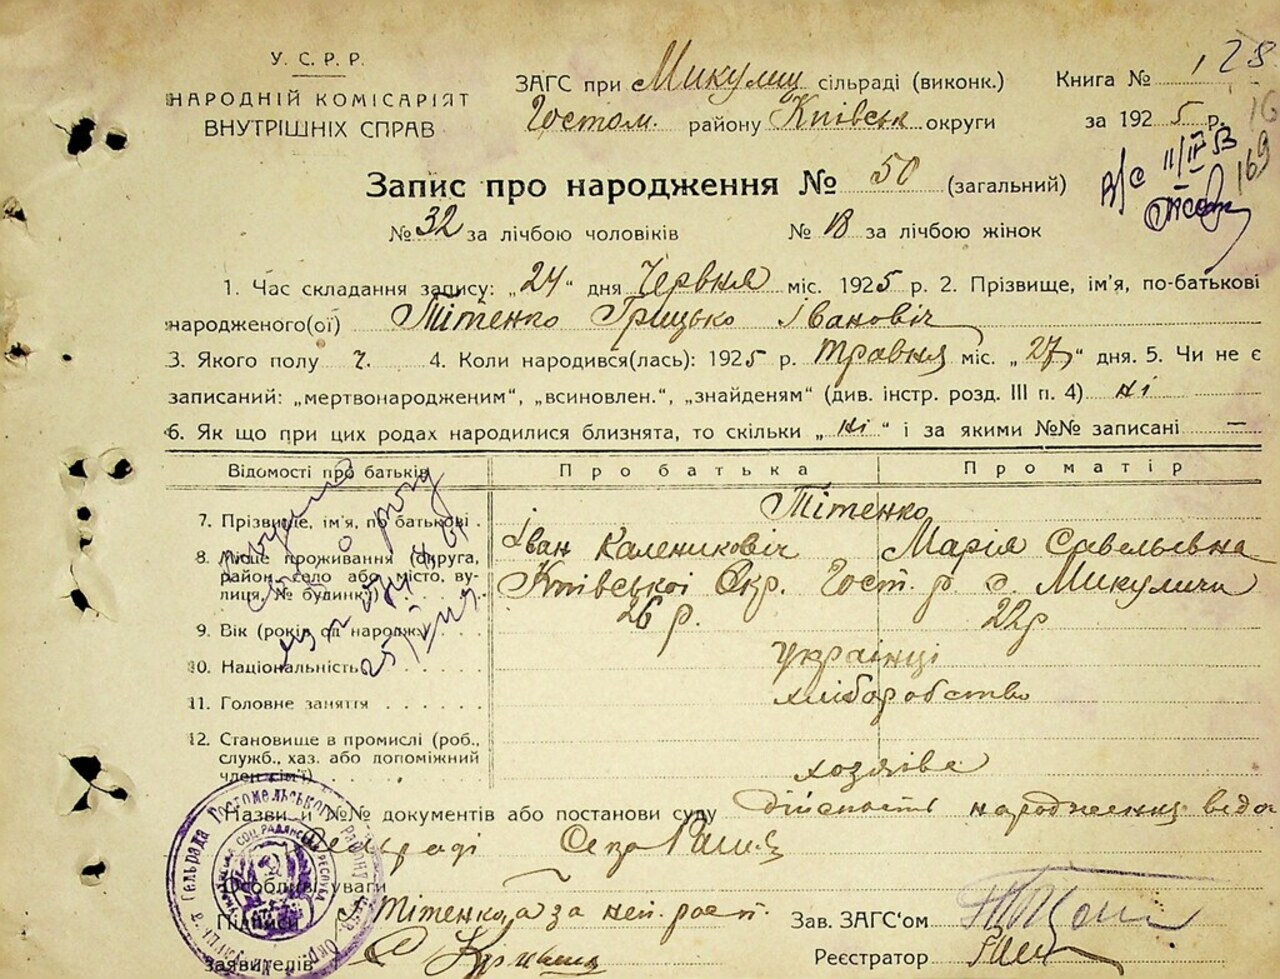 У. С. Р. Р.
НАРОДНІЙ КОМІСАРІЯТ
ВНУТРІШНІХ СПРАВ
ЗАГС при Микулиц сільраді (виконк.)
Гостом. району Київськ округи
Книга № 128
за 1925 р.
169
Запис про народження № 50 (загальний)
№ 32 за лічбою чоловіків № 18 за лічбою жінок
1. Час складання запису: „24“ дня Червня міс. 1925 р. 2. Прізвище, ім'я, по-батькові
народженого(ої) Тітенко Грицько Івановіч
3. Якого полу ч. 4. Коли народився(лась): 1925 р. Травня міс. „27“ дня. 5. Чи не є
записаний: „мертвонародженим“, „всиновлен.“, „знайденям“ (див. інстр. розд. III п. 4) ні
6. Як що при цих родах народилися близнята, то скільки „ні“ і за якими №№ записані —
Відомості про батьків Про батька Про матір
7. Прізвище, ім'я, по батькові . Тітенко
Іван Калениковіч Марія Савельєвна
8. Місце проживання (округа, район, село або місто, вулиця, № будинк.) Київської Окр. Гост. р. с. Микуличи
9. Вік (років од народж.) . . . 26 р. 22 р
10. Національність . . . . . українці
11. Головне заняття . . . . . . хліборобство
12. Становище в промислі (роб.,
служб., хаз. або допоміжний
член сім'ї) . . . . . . . хозяїве
Назви й №№ документів або постанови суду дійсность народження відо
Сельраді
Особливі уваги
Підписи Тітенко, а за неп.
заявителів
Зав. ЗАГС'ом
Реєстратор